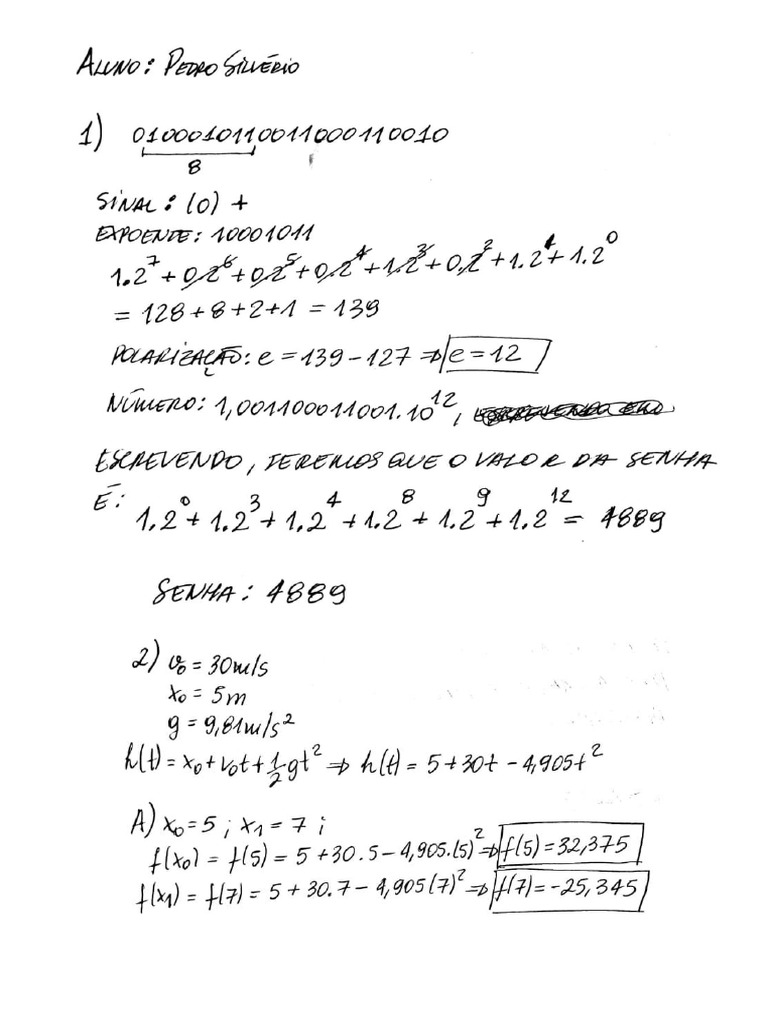 ALUNO: PEDRO SILVÉRIO
1) 010001011001100011 0010
8
SINAL: (0) +
EXPOENTE: 10001011
1.2^7 + 0.2^6 + 0.2^5 + 0.2^4 + 1.2^3 + 0.2^2 + 1.2^1 + 1.2^0
= 128 + 8 + 2 + 1 = 139
POLARIZAÇÃO: e = 139 - 127 ⇒ e = 12
NÚMERO: 1,001100011001.10^12,
ESCREVENDO, TEREMOS QUE O VALOR DA SENHA
É:
1.2^0 + 1.2^3 + 1.2^4 + 1.2^8 + 1.2^9 + 1.2^12 = 4889
SENHA: 4889
2) v₀ = 30m/s
x₀ = 5m
g = 9,81m/s²
h(t) = x₀ + v₀t + 1/2 gt² ⇒ h(t) = 5 + 30t - 4,905t²
A) x₀ = 5 ; x₁ = 7 ;
f(x₀) = f(5) = 5 + 30.5 - 4,905.(5)² ⇒ f(5) = 32,375
f(x₁) = f(7) = 5 + 30.7 - 4,905(7)² ⇒ f(7) = -25,345